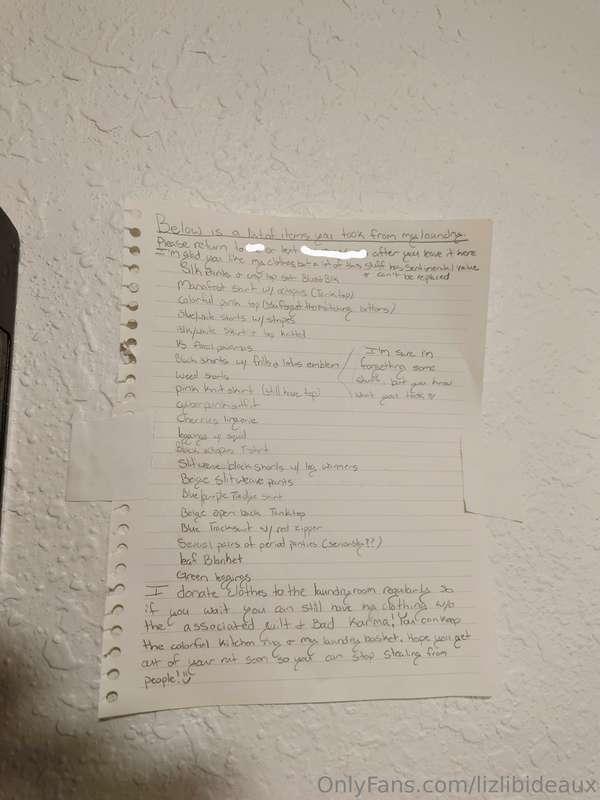 Below is a list of items you took from my laundry.
Please return to or text after you leave it here
I'm glad you like my clothes but a lot of this stuff has sentimental value
& can't be replaced
Silk pants & crop top set
Manafest shirt w/ octopus (Tanktop)
Colorful pink top (you forgot the matching bottoms)
Blue/white shorts w/ stripes
Blk/white skirt & top knitted
VS floral pajamas
Black shorts w/ frills & lotus emblem
I'm sure I'm
forgetting some
stuff, but you know
what you took
Weed shorts
pink knit skirt (still have top)
cyberpink outfit
Cherries lingerie
leggings w/ squid
Black octopus T-shirt
Slitweave black shorts w/ leg warmers
Beige slitweave pants
Blue/purple skirt
Beige open back Tanktop
Blue Tracksuit w/ red zipper
Several pairs of period panties (seriously??)
leaf Blanket
Green leggings
I donate clothes to the laundryroom regularly so
if you wait you can still have my clothing w/o
the associated guilt & Bad Karma! You can keep
the colorful kitchen rug & my laundry basket. Hope you get
out of your rut soon so you can stop stealing from
people!
OnlyFans.com/lizlibideaux